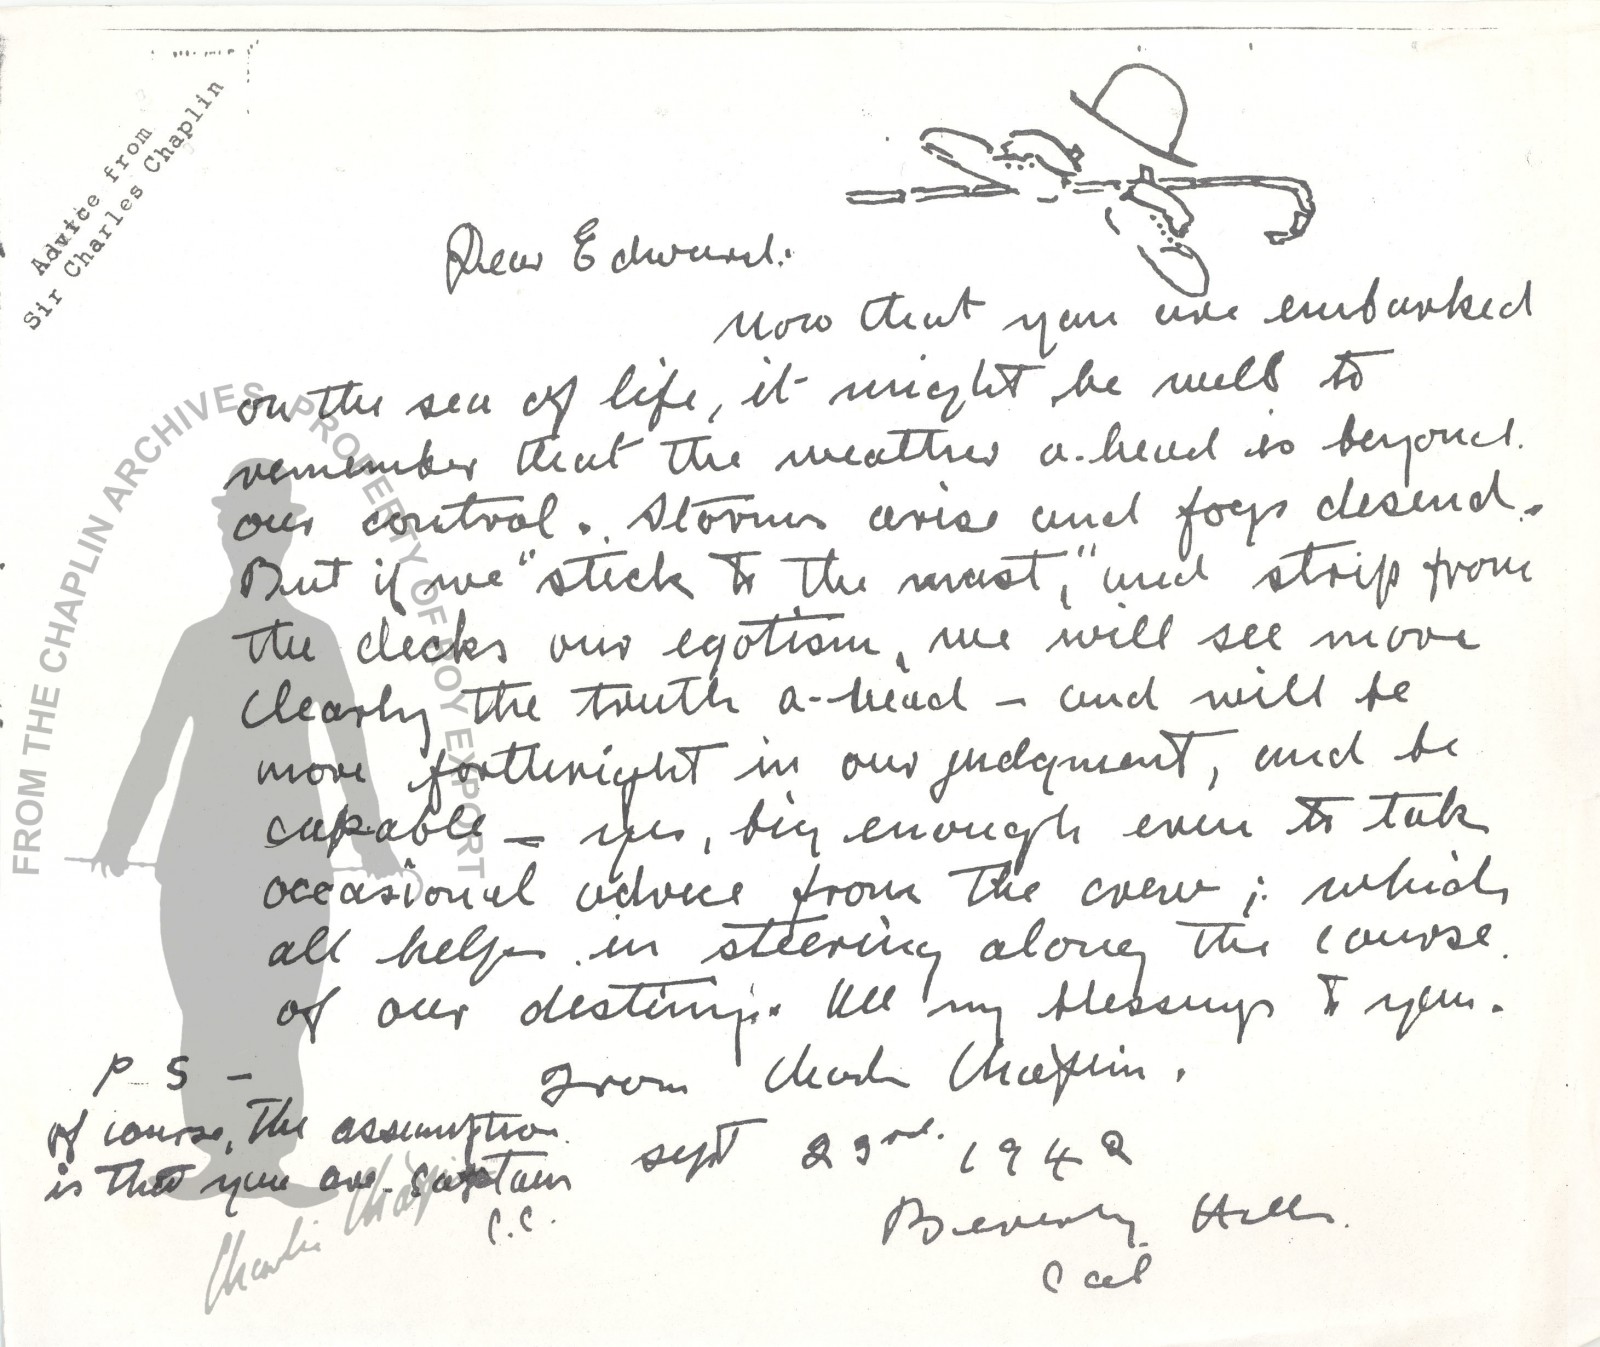 Advice from
Sir Charles Chaplin
Dear Edward:
Now that you are embarked
on the sea of life, it might be well to
remember that the weather a-head is beyond
our control. Storms arise and fogs desend.
But if we "stick to the mast," and strip from
the decks our egotism, we will see more
clearly the truth a-head – and will be
more forthright in our judgment, and be
capable – yes, big enough even to take
occasional advice from the crew; which
all helps in steering along the course
of our destiny. All my blessings to you.
From Charlie Chaplin.
Sept 23rd. 1942
Beverly Hills.
Cal
P S –
of course, the assumption
is that you are captain
C.C.
FROM THE CHAPLIN ARCHIVES PROPERTY OF ROY EXPORT
Charlie Chaplin